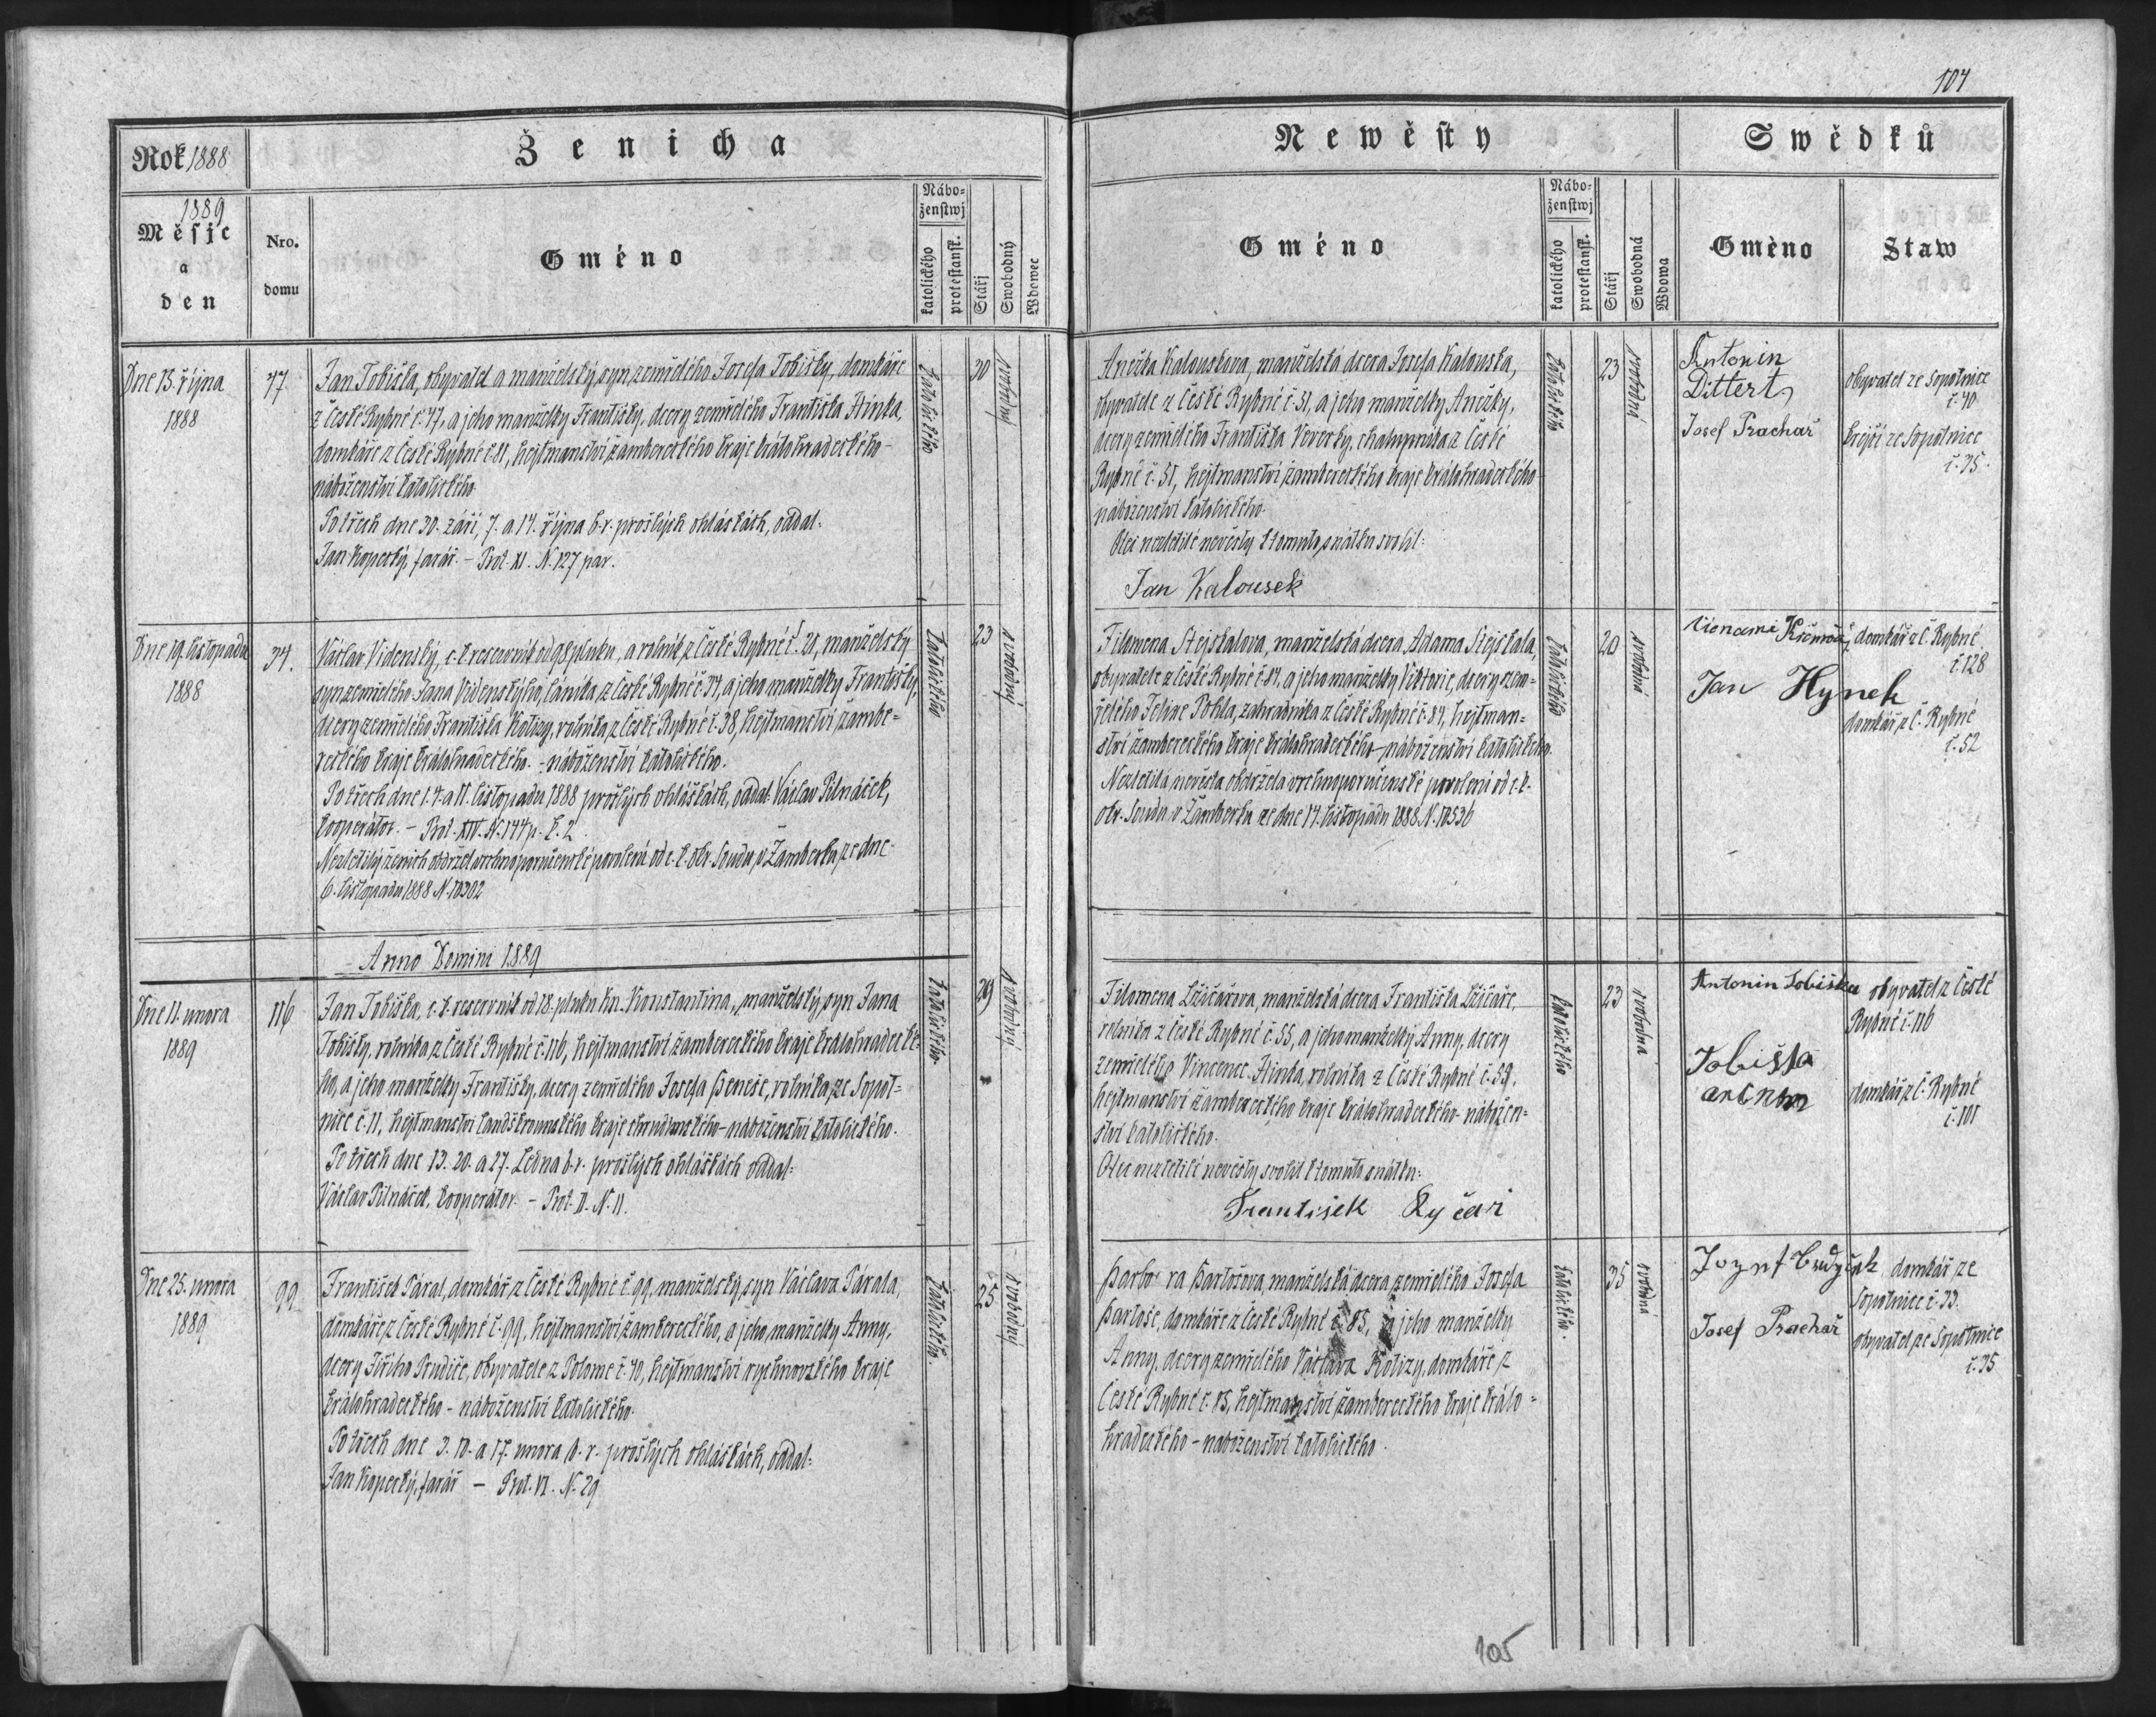 104
Rok 1888
Ženicha
1889
Měsjc
a
den
Nro.
domu
Gméno
Nábo-
ženstwj
katolického
protestansk.
Stářj
Swobodný
Wdowec
Dne 15. října
1888
47
Jan Tobiška, obyvatel a manželský syn zemřelého Josefa Tobišky, domkáře
z České Rybné č. 47, a jeho manželky Františky, dcery zemřelého Františka Hinka,
domkáře z České Rybné č. 81, hejtmanství žambereckého kraje králohradeckého -
náboženství katolického
Po třech dne 30. září, 7. a 14. října b. r. prošlých ohláškách, oddal:
Jan Kopecký, farář. - Prot. XI. N. 127 par.
katolického
30
svobodný
Dne 19. listopadu
1888
34.
Václav Videnský, c. k. reservník od 98 pluku, a rolník z České Rybné č. 20, manželský
syn zemřelého Jana Videnskýho, láníka z České Rybné č. 34, a jeho manželky Františky,
dcery zemřelého Františka Kotizy, rolníka z České Rybné č. 38, hejtmanství žambe=
reckého kraje králohradeckého. - náboženství katolického.
Po třech dne 1. 4. a 11. listopadu 1888 prošlých ohláškách, oddal: Václav Pilnáček,
kooperátor. - Prot. XIV. N. 144 p. k. 2.
Nezletilý ženich obdržel vrchnoporučenské povolení od c. k. okr. soudu v Žamberku ze dne
6. listopadu 1888 N. 10302
katolického
23
svobodný
Anno Domini 1889
Dne 11. unora
1889
116
Jan Tobiška, c. k. reservník od 18. pluku kn. Konstantina, manželský syn Jana
Tobišky, rolníka z České Rybné č. 116, hejtmanství žambereckého kraje králohradecké-
ho, a jeho manželky Františky, dcery zemřelého Josefa Beneše, rolníka ze Sopot=
nice č. 11, hejtmanství landškrounského kraje chrudimského - náboženství katolického.
Po třech dne 13. 20. a 27. Ledna b. r. prošlých ohláškách oddal:
Václav Pilnáček, kooperátor. - Prot. II. N. 11.
katolického
29
svobodný
Dne 25. unora
1889
99
František Páral, domkář z České Rybné č. 99, manželský syn Václava Párala,
domkáře z České Rybné č. 99, hejtmanství žambereckého, a jeho manželky Anny,
dcery Jiřího Prudiče, obyvatele z Polome č. 40, hejtmanství rychnovského kraje
králohradeckého - náboženství katolického.
Po třech dne 3. 10. a 17. unora b. r. prošlých ohláškách, oddal:
Jan Kopecký, farář - Prot. VI. N. 29
katolického.
25
svobodný
Newěsty
Swědků
Gméno
Nábo-
ženstwj
katolického
protestansk.
Stářj
Swobodná
Wdowa
Gméno
Staw
Anežka Kalouskova, manželská dcera Josefa Kalouska,
obyvatele z České Rybné č. 51, a jeho manželky Anežky,
dcery zemřelého Františka Veverky, chalupníka z České
Rybné č. 51, hejtmanství žambereckého kraje králohradeckého -
náboženství katolického.
Otec nezletilé nevěsty k tomuto sňatku svolil:
Jan Kalousek
katolického
23
svobodná
Antonin
Dittert
obyvatel ze Sopotnice
č. 40
Josef Prachař
krejčí ze Sopotnice
č. 35.
Filomena Stejskalova, manželská dcera Adama Stejskala,
obyvatele z České Rybné č. 84, a jeho manželky Viktorie, dcery zem=
řelého Felixe Pohla, zahradníka z České Rybné č. 84, hejtman=
ství žambereckého kraje králohradeckého - náboženství katolického.
Nezletilá nevěsta obdržela vrchnoporučenské povolení od c. k.
okr. soudu v Žamberku ze dne 14. listopadu 1888. N. 10536
katolického
20
svobodná
domkář z Č. Rybné
č. 128
Jan Hynek
domkář z Č. Rybné
č. 52
Filomena Ližičařova, manželská dcera Františka Ližičaře,
rolníka z České Rybné č. 55, a jeho manželky Anny, dcery
zemřelého Vincence Hinka, rolníka z České Rybné č. 59,
hejtmanství žambereckého kraje králohradeckého - nábožen=
ství katolického.
Otec nezletilé nevěsty svolil k tomuto sňatku:
Frantisek Lyčař
katolického
23
svobodná
Antonin Tobiška obyvatel z České
Rybné č. 116
Tobiška
antnon
domkář z Č. Rybné
č. 101
Barbora Bartošova, manželská dcera zemřelého Josefa
Bartoše, domkáře z České Rybné č. 85, a jeho manželky
Anny, dcery zemřelého Václava Kotizy, domkáře z
České Rybné č. 85, hejtmanství žambereckého kraje králo=
hradeckého - náboženství katolického.
katolického.
35
svobodná
domkář ze
Sopotnice č. 33.
Josef Prachař
obyvatel ze Sopotnice
č. 35
105